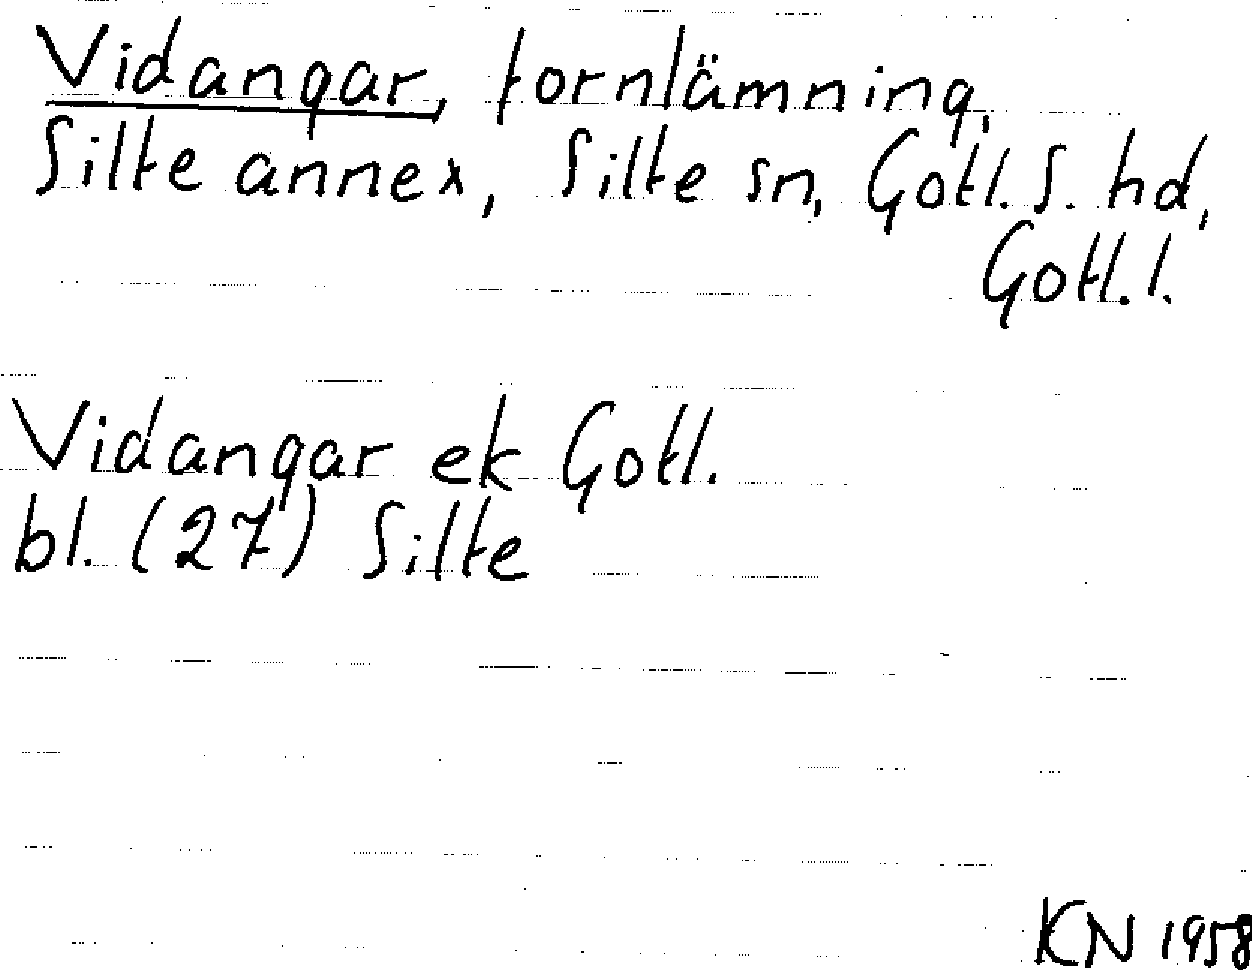 Vidangar, fornlämning,
Silte annex, Silte sn, Gotl. S. hd,
Gotl. l.
Vidangar ek Gotl.
bl. (27) Silte
KN 1958